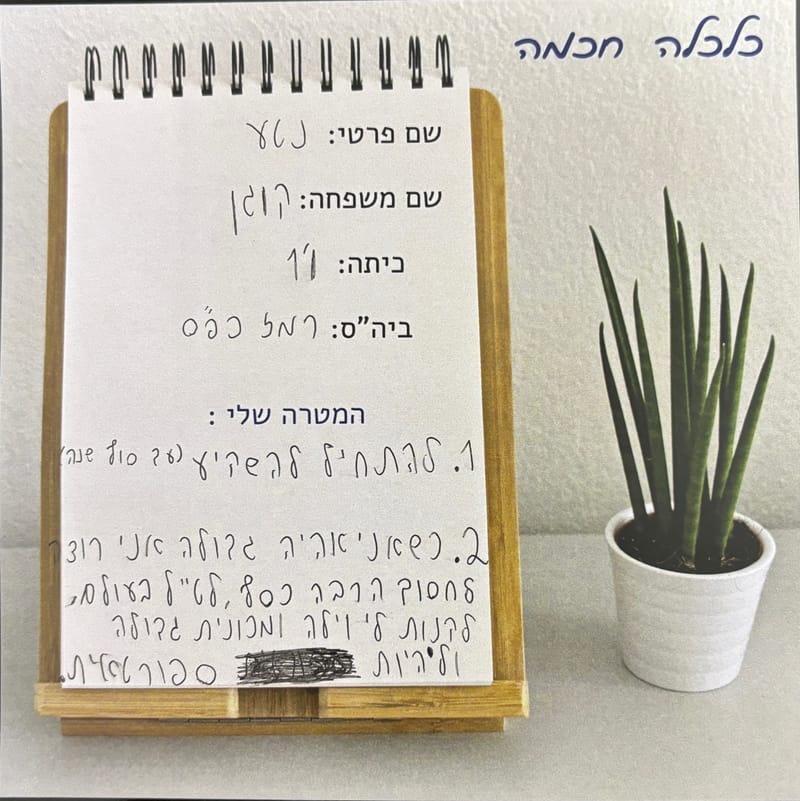 כלכלה חכמה
שם פרטי: נטע
שם משפחה: קוגן
כיתה: ו'1
ביה"ס: רמז כפ"ס
המטרה שלי :
1. להתחיל להשקיע (עד סוף שנה)
2. כשאני אהיה גדולה אני רוצה
לחסוך הרבה כסף, לטייל בעולם,
לקנות לי וילה ומכונית גדולה
ולהיות ספורטאית.